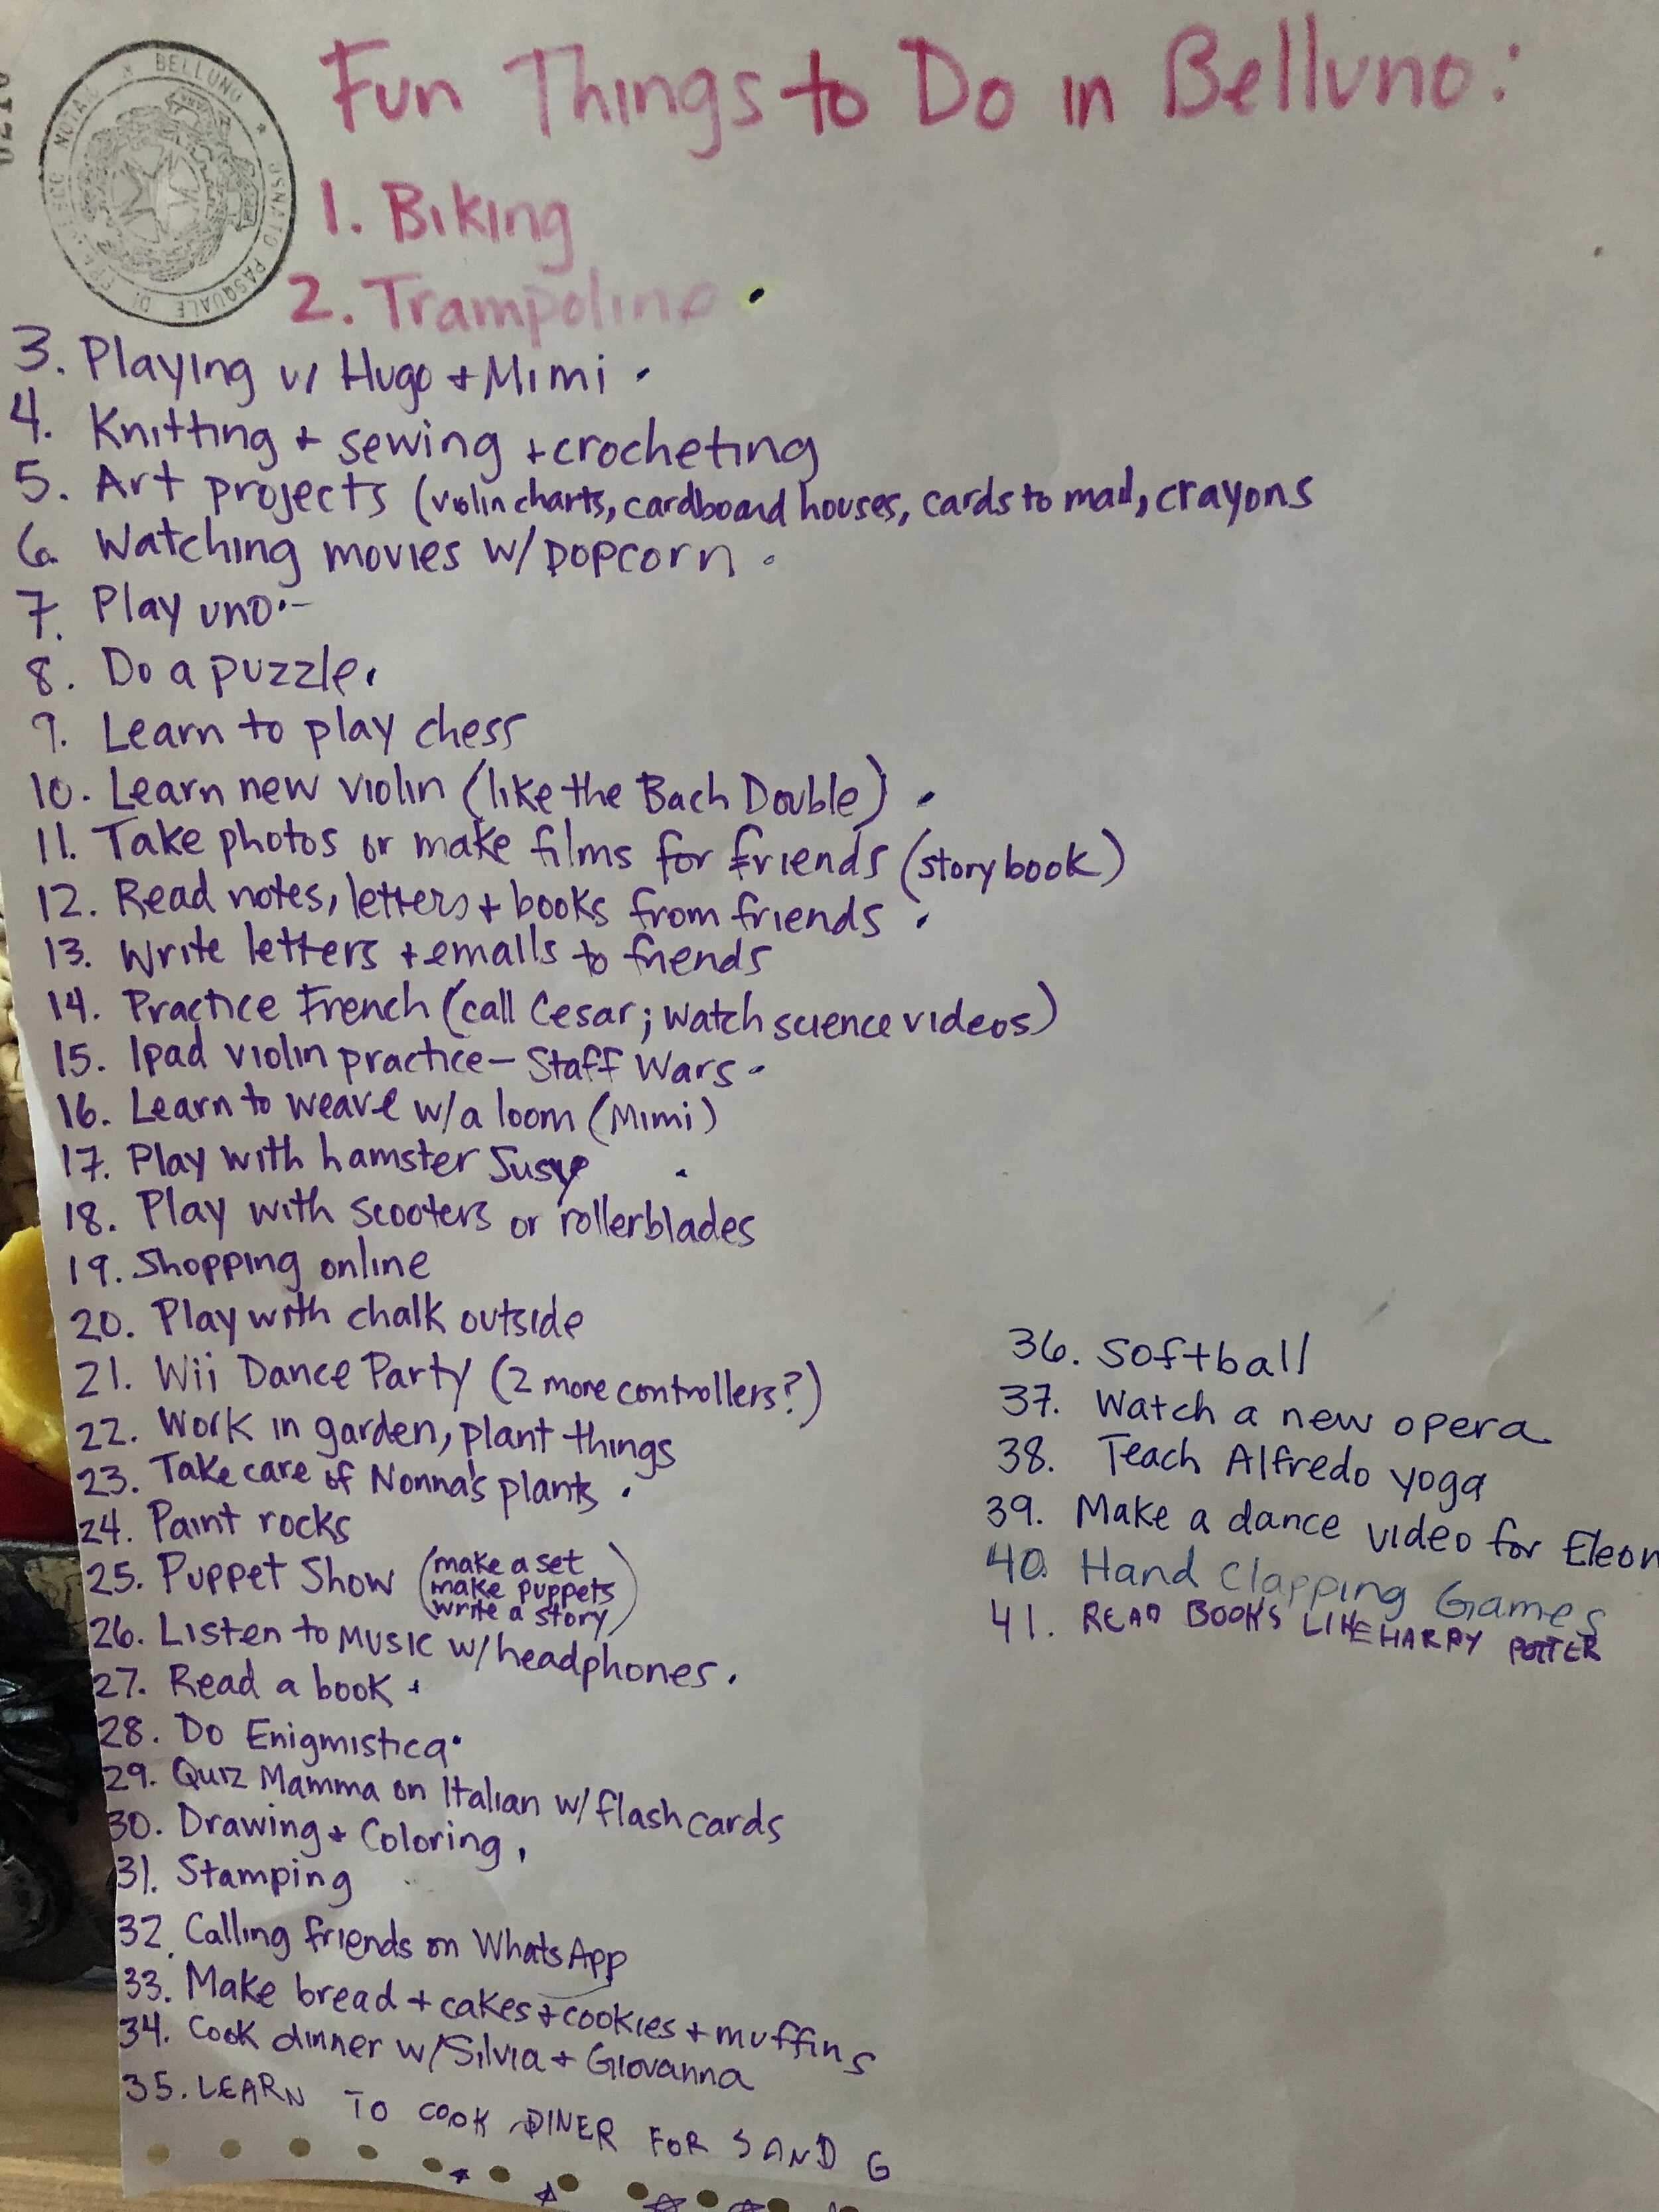 Fun Things to Do in Belluno:
BELLUNO
PASQUALE DI
1. Biking
2. Trampoline
3. Playing w/ Hugo + Mimi
4. Knitting + sewing + crocheting
5. Art projects (violin charts, cardboard houses, cards to mail, crayons
6. Watching movies w/ popcorn
7. Play uno
8. Do a puzzle
9. Learn to play chess
10. Learn new violin (like the Bach Double)
11. Take photos or make films for friends (storybook)
12. Read notes, letters + books from friends
13. Write letters + emails to friends
14. Practice French (call Cesar; watch science videos)
15. Ipad violin practice - Staff Wars
16. Learn to weave w/a loom (Mimi)
17. Play with hamster Susy
18. Play with scooters or rollerblades
19. Shopping online
20. Play with chalk outside
21. Wii Dance Party (2 more controllers?)
22. Work in garden, plant things
23. Take care of Nonna's plants
24. Paint rocks
25. Puppet Show (make a set
make puppets
write a story)
26. Listen to music w/ headphones
27. Read a book
28. Do Enigmistica
29. Quiz Mamma on Italian w/ flash cards
30. Drawing + Coloring
31. Stamping
32. Calling friends on WhatsApp
33. Make bread + cakes + cookies + muffins
34. Cook dinner w/ Silvia + Giovanna
35. LEARN TO COOK DINER FOR S AND G
36. Softball
37. Watch a new opera
38. Teach Alfredo yoga
39. Make a dance video for Eleon
40. Hand Clapping Games
41. READ BOOKS LIKE HARRY POTTER